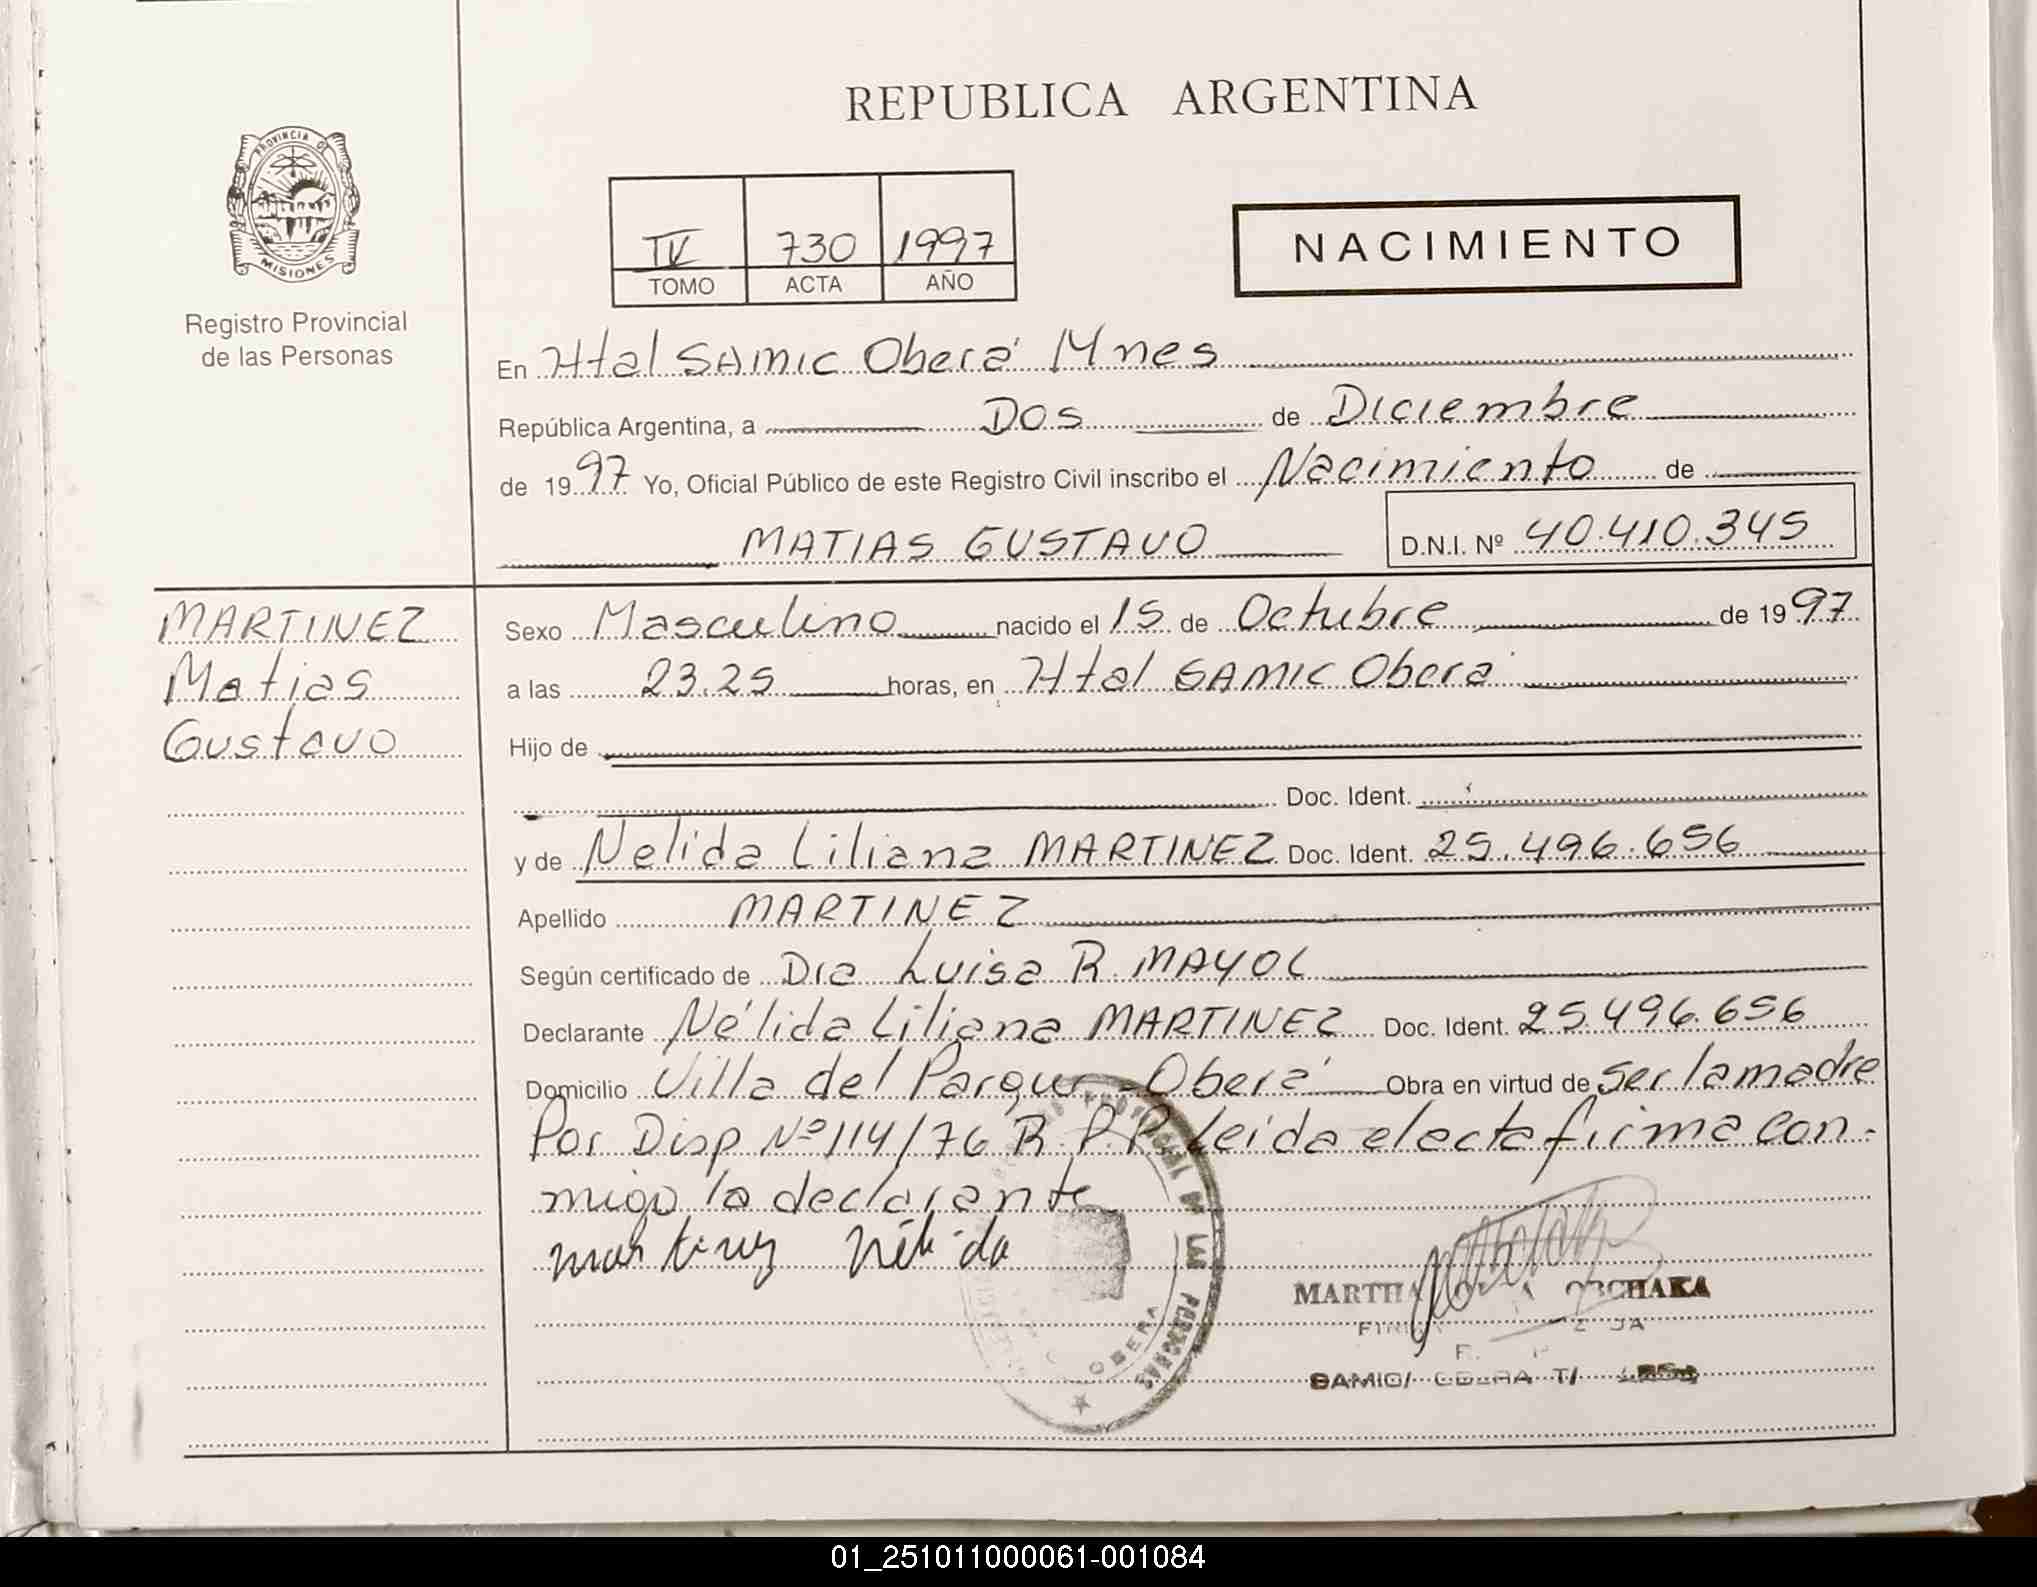 REPUBLICA ARGENTINA
PROVINCIA DE
MISIONES
Registro Provincial
de las Personas
IV 730 1997
TOMO ACTA AÑO
NACIMIENTO
En Htal SAMIC Oberá Mnes
República Argentina, a Dos de Diciembre
de 1997 Yo, Oficial Público de este Registro Civil inscribo el Nacimiento de
MATIAS GUSTAVO D.N.I. Nº 40.410.345
MARTINEZ
Matias
Gustavo
Sexo Masculino nacido el 15 de Octubre de 1997
a las 23.25 horas, en Htal SAMIC Oberá
Hijo de
Doc. Ident.
y de Nelida Liliana MARTINEZ Doc. Ident. 25.496.656
Apellido MARTINEZ
Según certificado de Dra Luisa R. MAYOL
Declarante Nélida Liliana MARTINEZ Doc. Ident. 25.496.656
Domicilio Villa del Parque - Oberá Obra en virtud de ser la madre
Por Disp Nº 114/76 R.P.P. Leída el acta firma con-
migo la declarante
Martinez Nélida
MARTHA OBCHAKA
SAMIC/
PROVINCIAL DE LAS PERSONAS
OBERA
01_251011000061-001084